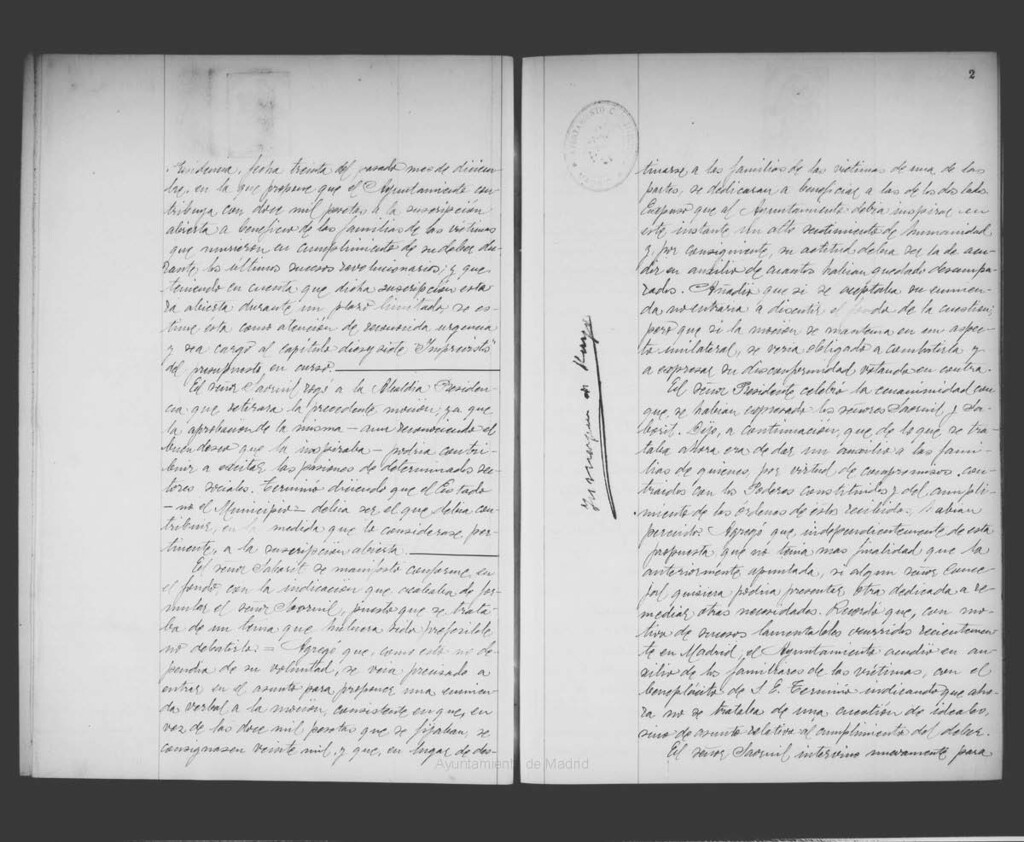 sidencia, fecha treinta del pasado mes de diciem
bre, en la que propone que el Ayuntamiento con
tribuya con doce mil pesetas a la suscripción
abierta a beneficio de las familias de las víctimas
que murieron en cumplimiento de su deber du
rante los últimos sucesos revolucionarios; y que
teniendo en cuenta que dicha suscripción esta
rá abierta durante un plazo limitado se es
time esta como atención de reconocida urgencia
y sea cargo al capítulo diez y siete "Imprevistos"
del presupuesto en curso.
El señor Saornil rogó a la Alcaldía Presiden
cia que retirara la precedente moción, ya que
la aprobación de la misma - aun reconociendo el
buen deseo que la inspiraba - podría contri
buir a excitar las pasiones de determinados sec
tores sociales. Terminó diciendo que el Estado
- no el Municipio - debía ser el que debía con
tribuir, en la medida que lo considerase per
tinente, a la suscripción abierta.
El señor Saborit se manifestó conforme, en
el fondo, con la indicación que acababa de for
mular el señor Saornil, puesto que se trata
ba de un tema que hubiera sido preferible
no debatirlo. = Agregó que, como esto no de
pendía de su voluntad, se veía precisado a
entrar en el asunto para proponer una enmien
da verbal a la moción, consistente en que, en
vez de las doce mil pesetas que se fijaban, se
consignasen veinte mil, y que, en lugar de des-
2
tinarse a las familias de las víctimas de una de las
partes, se dedicaran a beneficiar a las de los dos lados.
Expuso que el Ayuntamiento debía inspirar en
este instante un alto sentimiento de humanidad
y, por consiguiente, su actitud debía ser la de acu
dir en auxilio de cuantos habían quedado desampa
rados. Añadió que si se aceptaba su enmien
da no entraría a discutir el fondo de la cuestión;
pero que si la moción se mantenía en su aspec
to unilateral, se vería obligado a combatirla y
a expresar su disconformidad votando en contra.
El señor Presidente celebró la ecuanimidad con
que se habían expresado los señores Saornil y Sa
borit. Dijo, a continuación, que de lo que se tra
taba ahora era de dar un auxilio a las fami
lias de quienes, por virtud de compromisos con
traídos con los Poderes constituidos y del cumpli
miento de las órdenes de estos recibidas, habían
perecido. Agregó que independientemente de esta
propuesta, que no tenía mas finalidad que la
anteriormente apuntada, si algun señor Conce
jal quisiera podría presentar otra dedicada a re
mediar otras necesidades. Recordó que, con mo
tivo de sucesos lamentables ocurridos recientemen
te en Madrid, el Ayuntamiento acudió en au
xilio de los familiares de las víctimas, con el
beneplácito de S. E. Terminó indicando que aho
ra no se trataba de una cuestión de ideales,
sino de asunto relativo al cumplimiento del deber.
El señor Saornil intervino nuevamente para
Ayuntamiento de Madrid